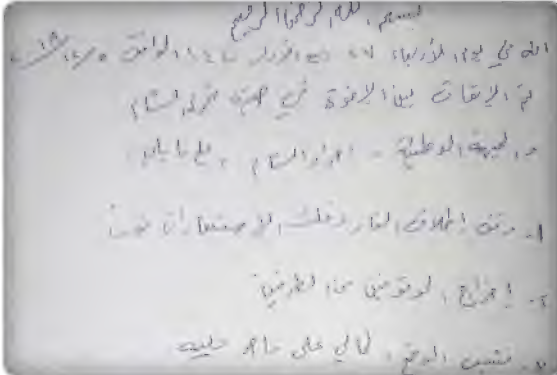 بسم الله الرحمن الرحيم
انه في يوم الأربعاء ٢٧ ربيع الأول ١٤٤١ الموافق
تم الإتفاق بين الإخوة في هيئة تحرير الشام
و الجبهة الوطنية - احرار الشام ، على ما يلي
1. وقف إطلاق النار وفك الإستنفارات فوراً
٢. إخراج الموقوفين من الطرفين
٣. تثبيت الوضع الحالي على ما هو عليه